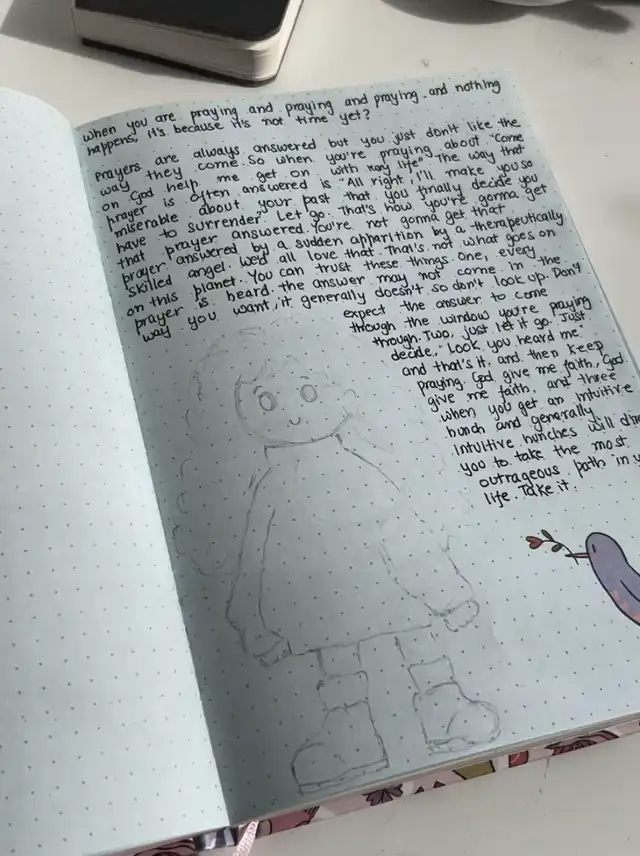 when you are praying and praying and praying and nothing
happens, it's because it's not time yet?
Prayers are always answered but you just don't like the
way they come. So when you're praying about "Come
on God help me get on with my life" The way that
prayer is often answered is "All right, I'll make you so
miserable about your past that you finally decide you
have to surrender." Let go. That's how you're gonna get
that prayer answered. You're not gonna get that
prayer answered by a sudden apparition by a therapeutically
skilled angel. We'd all love that. That's not what goes on
on this planet. You can trust these things. one, every
prayer is heard. the answer may not come in the
way you want, it generally doesn't, so don't look up. Don't
expect the answer to come
though the window you're praying
through. Two, just let it go. Just
decide, "Look you heard me."
and that's it, and then keep
praying. God, give me faith, God,
give me faith. and three
when you get an intuitive
hunch and generally
intuitive hunches will
you to take the most
outrageous path in
life. Take it.